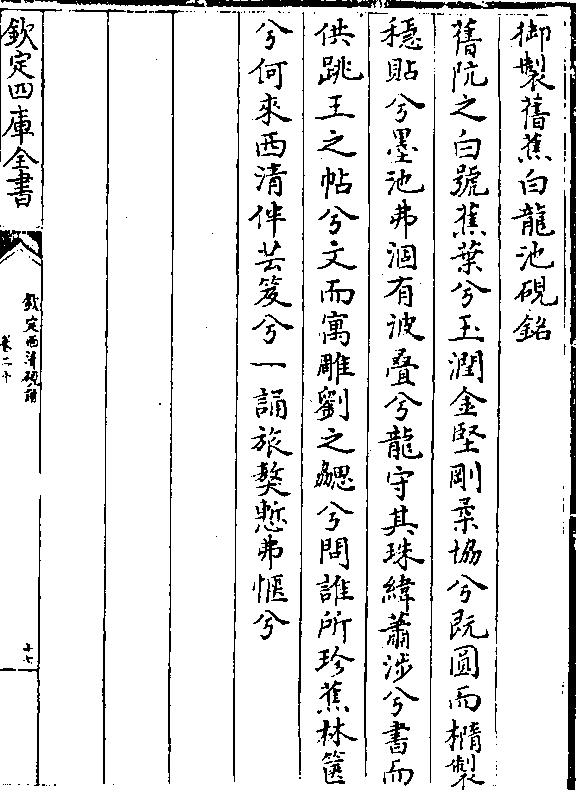 御製舊蕉白龍池硯銘
舊阬之白號蕉葉兮玉潤金堅剛柔協兮既圓而橢製
穩貼兮墨池弗涸有波疊兮龍守其珠緯蕭涉兮書而
供跳王之帖兮文而寓雕劉之勰兮問誰所珍蕉林篋
兮何來西清伴芸笈兮一誦旅獒慙弗愜兮
欽定四庫全書
欽定西清硯譜
卷二十
十七